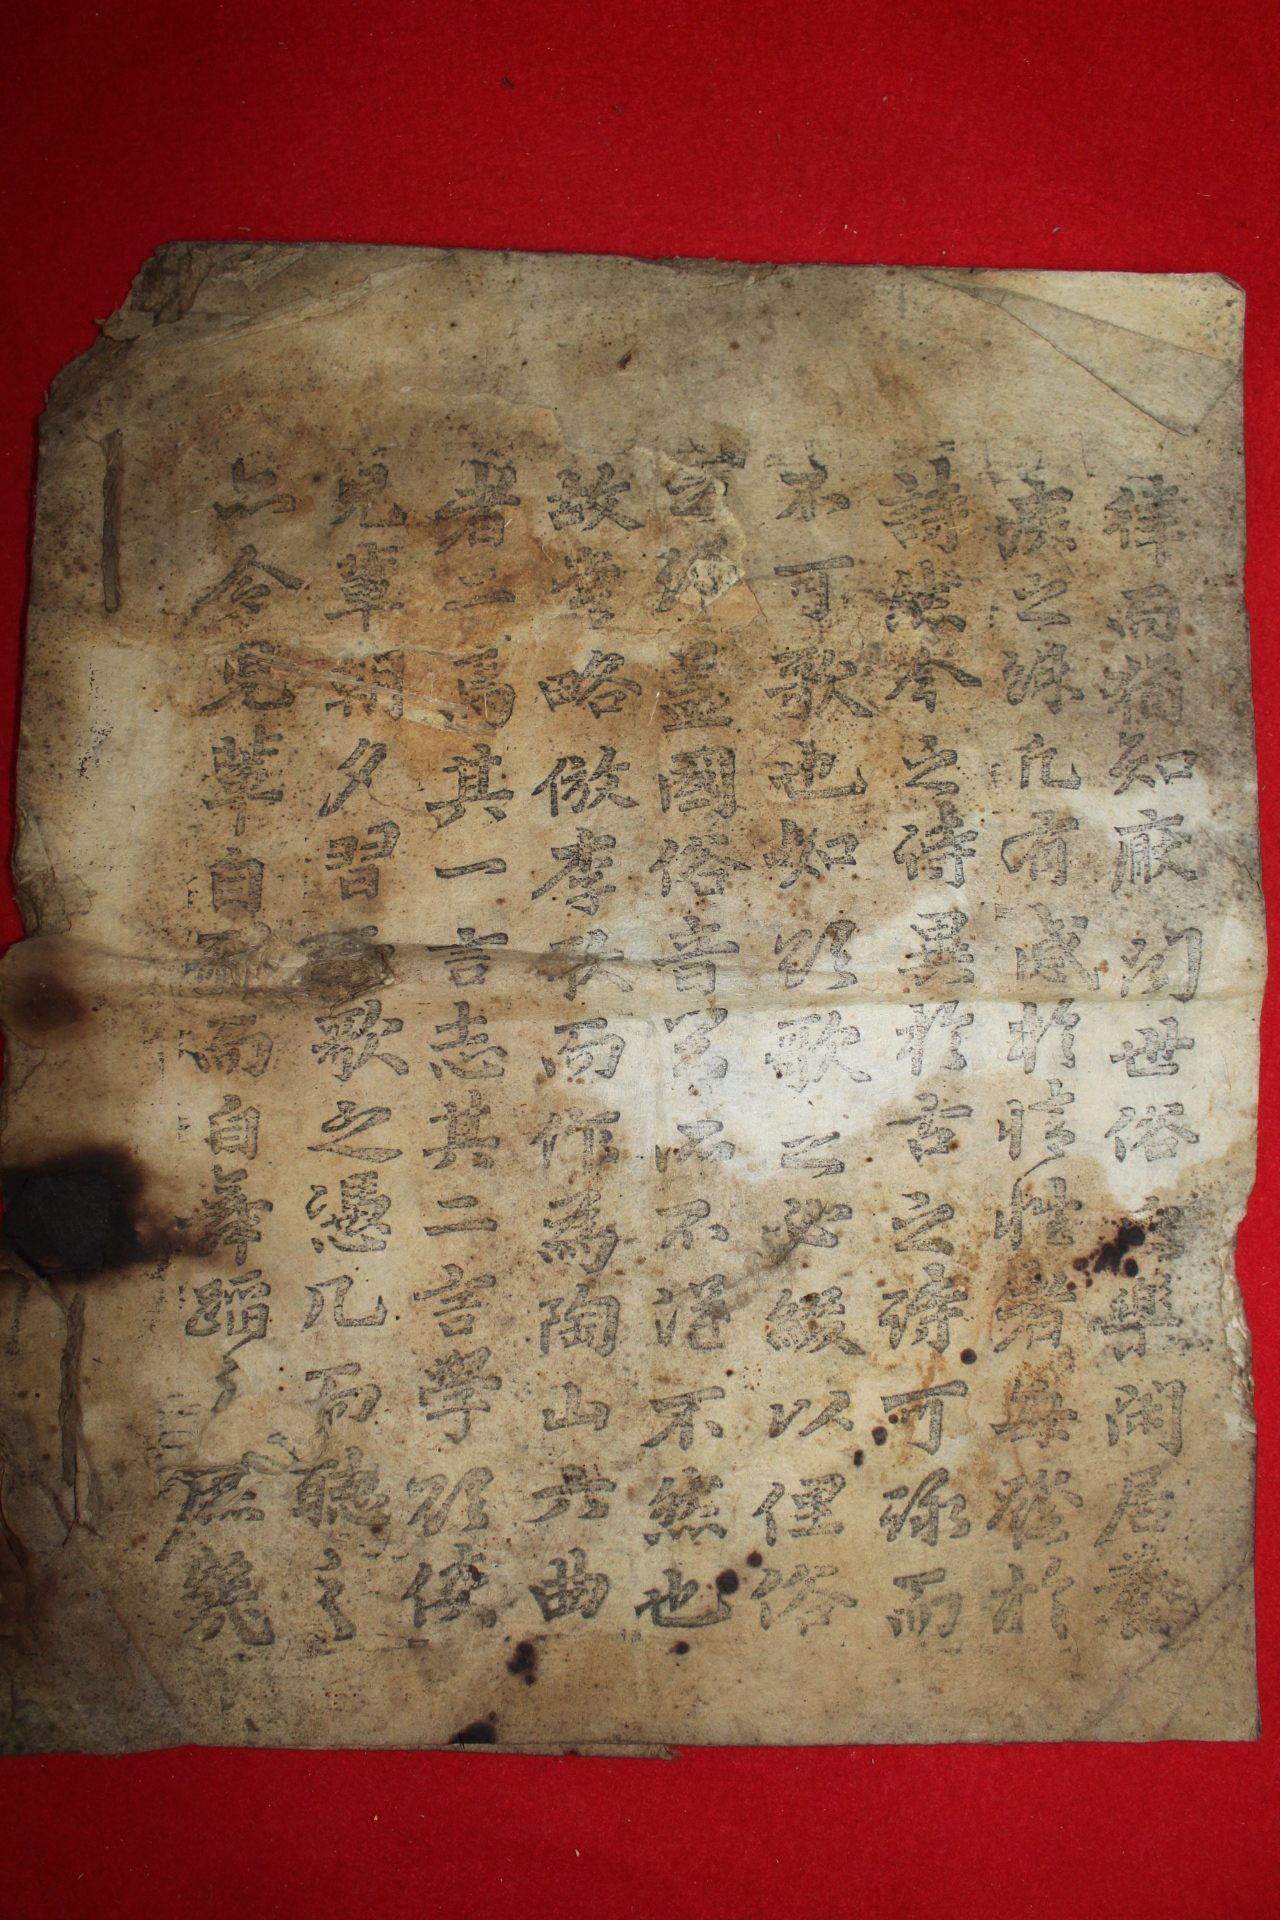 律而猶知厭聞世俗之樂閒居養
疾之餘凡有感於情性者每發於
詩然今之詩異於古之詩可詠而
不可歌也如欲歌之必綴以俚俗
之語蓋國俗音節所不得不然也
故嘗略倣李歌而作爲陶山六曲
者二焉其一言志其二言學欲使
兒輩朝夕習而歌之憑几而聽之
亦令兒輩自歌而自舞蹈之庶幾